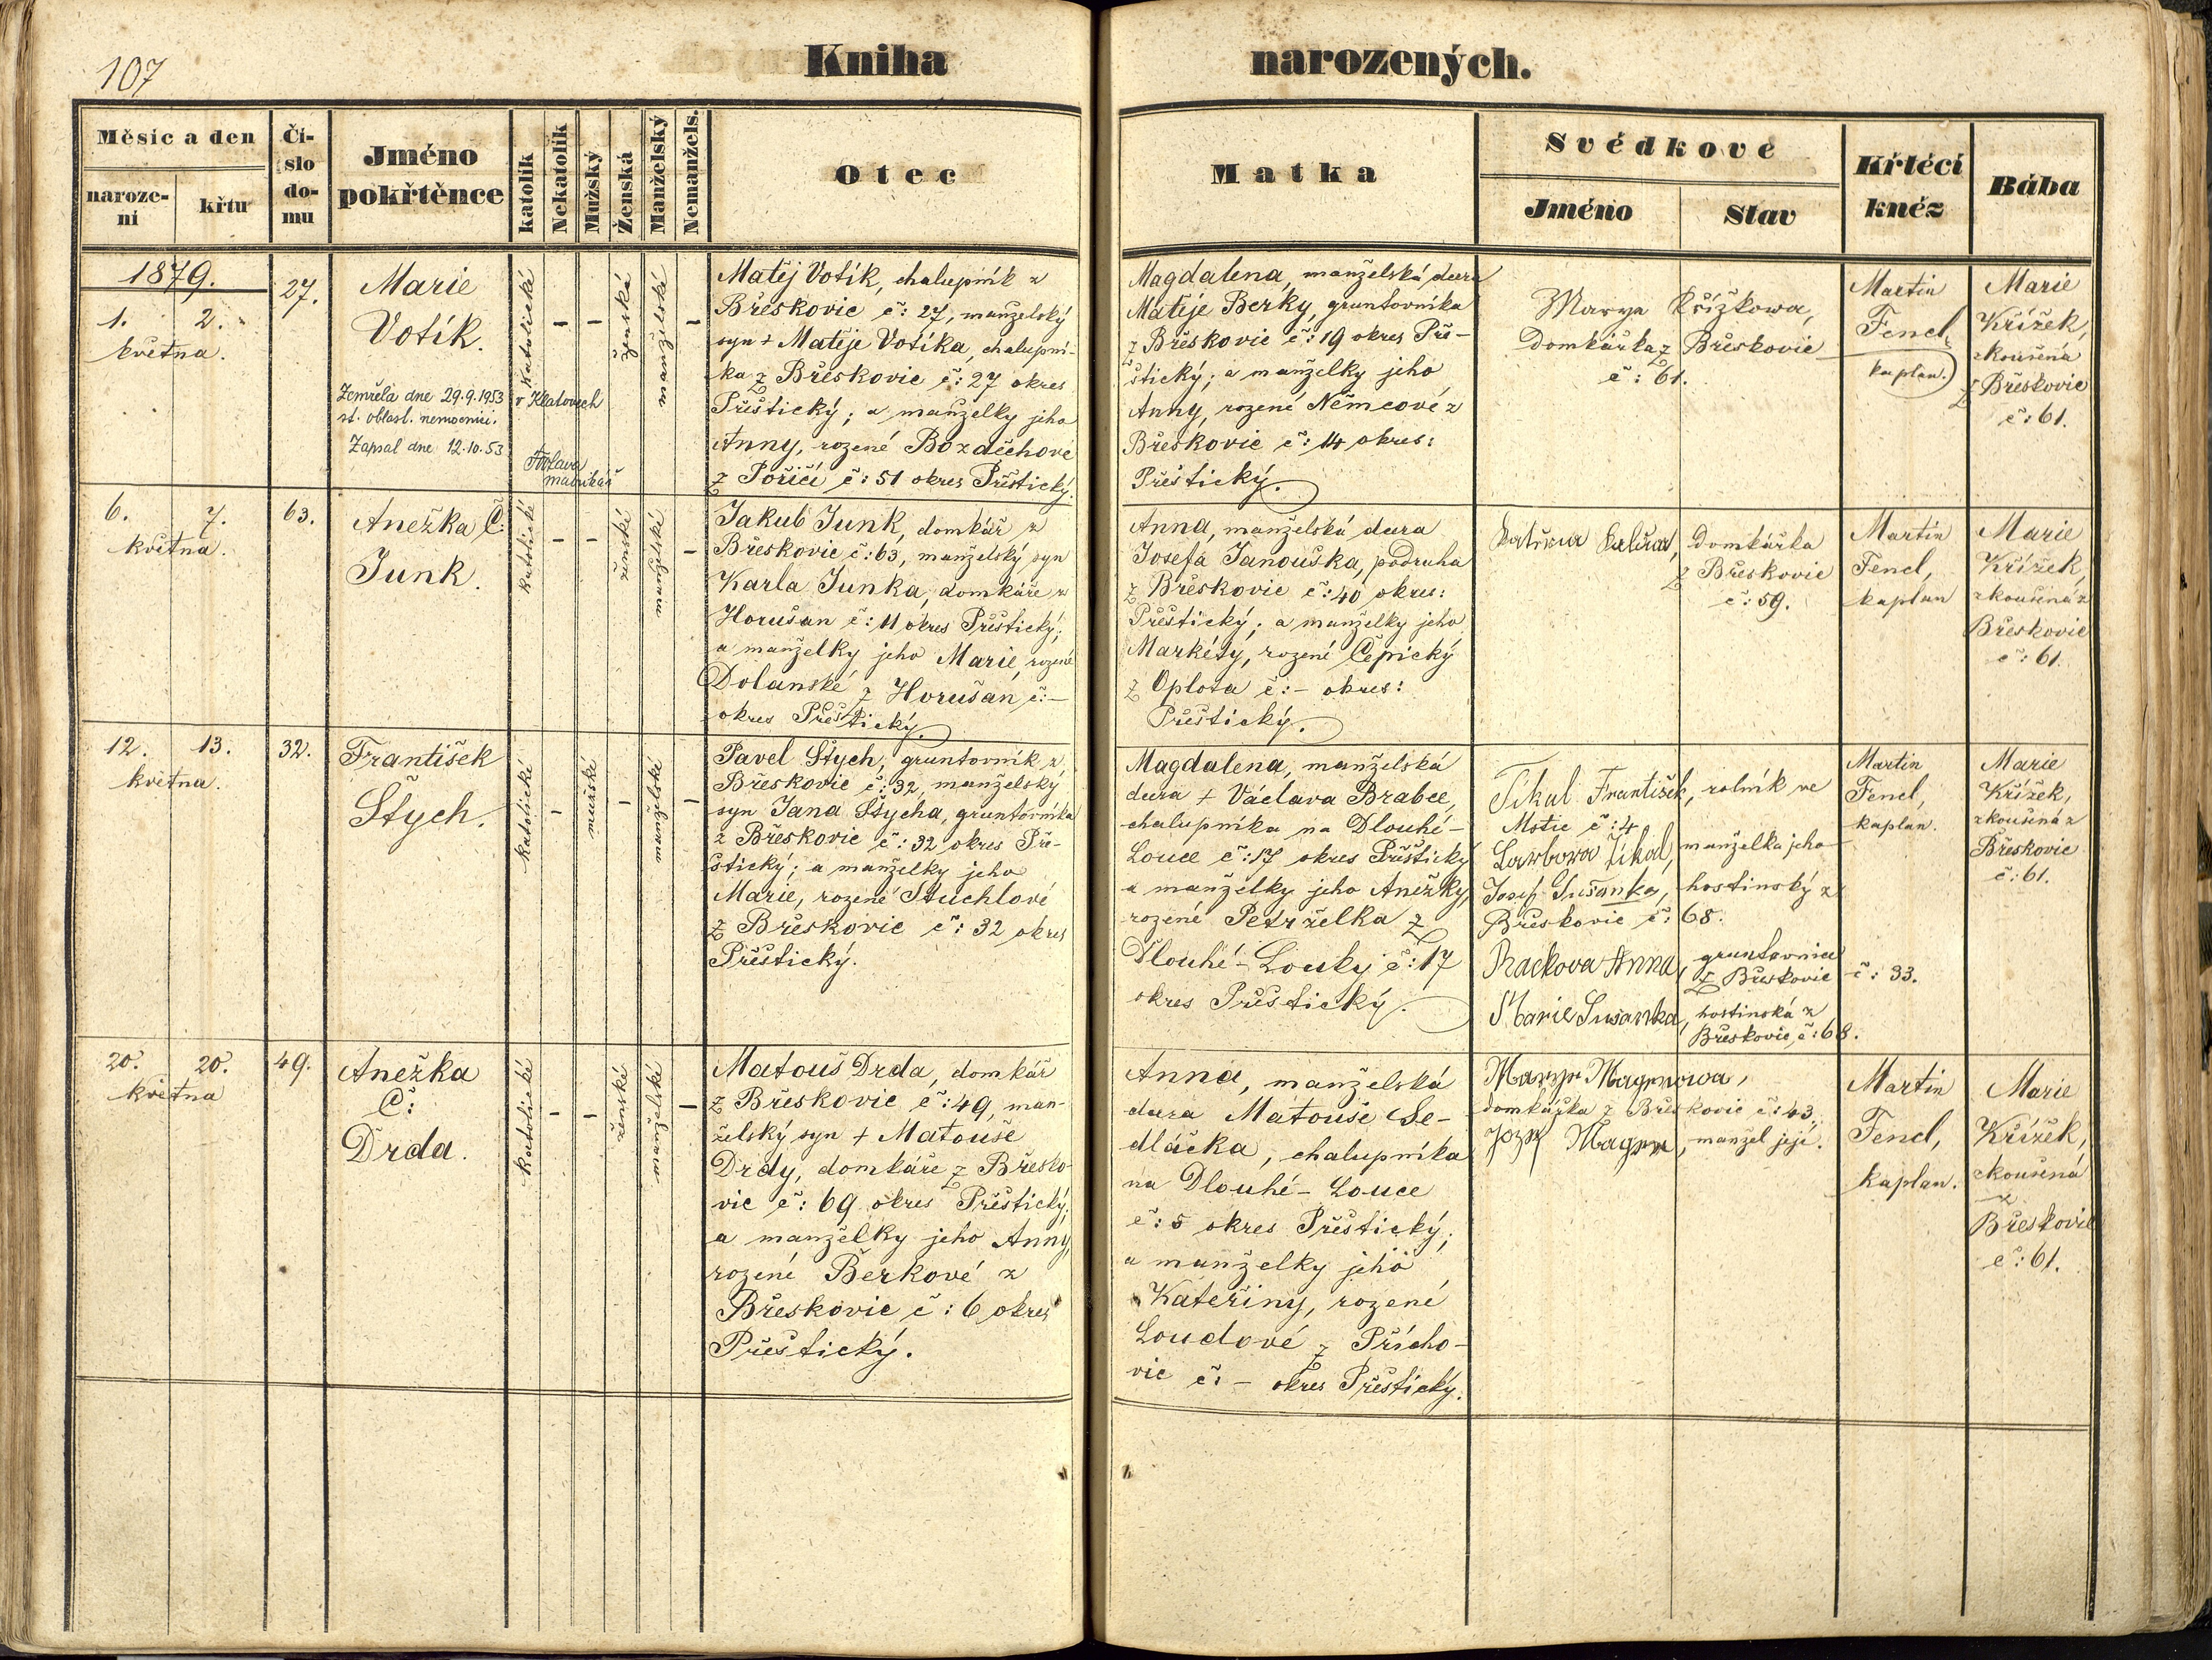 107
Kniha narozených.
Měsíc a den
naroze-
ní
křtu
Čí-
slo
do-
mu
Jméno
pokřtěnce
katolík
Nekatolík
Mužský
Ženská
Manželský
Nemanžels.
Otec
Matka
Svědkové
Jméno
Stav
Křtěcí
kněz
Bába
1879.
1. 2.
května.
27.
Marie
Votík.
Zemřela dne 29.9.1953 v Klatovech
st. oblast. nemocnici.
Zapsal dne 12.10.53
matrikář
katolické
–
–
ženské
manželské
–
Matěj Votík, chalupník z
Břeskovic č: 27, manželský
syn + Matěje Votíka, chalupní-
ka z Břeskovic č: 27 okres
Přeštický; a manželky jeho
Anny, rozené Bozděchové
z Poříčí č: 51 okres Přeštický.
Magdalena, manželská dcera
Matěje Berky, gruntovníka
z Břeskovic č: 19 okres Pře-
štický; a manželky jeho
Anny, rozené Němcové z
Břeskovic č: 14 okres:
Přeštický.
Marya Křížkowa,
Domkářka z Břeskovic
č: 61.
Martin
Fencl,
kaplan.
Marie
Křížek,
zkoušená
z Břeskovic
č: 61.
6. 7.
května.
63.
Anežka Č:
Junk.
katolické
–
–
ženské
manželské
–
Jakub Junk, domkář z
Břeskovic č: 63, manželský syn
Karla Junka, domkáře z
Horušan č: 11 okres Přeštický;
a manželky jeho Marie, rozené
Dolanské z Horušan č: –
okres Přeštický.
Anna, manželská dcera
Josefa Janouška, podruha
z Břeskovic č: 40 okres:
Přeštický; a manželky jeho
Markéty, rozené Čepický
z Oplota č: – okres:
Přeštický.
domkářka
z Břeskovic
č: 59.
Martin
Fencl,
kaplan
Marie
Křížek,
zkoušená z
Břeskovic
č: 61.
12. 13.
května.
32.
František
Štych.
katolické
–
mužské
–
manželské
–
Pavel Štych, gruntovník z
Břeskovic č: 32, manželský
syn Jana Štycha, gruntovníka
z Břeskovic č: 32 okres Pře-
štický; a manželky jeho
Marie, rozené Stuchlové
z Břeskovic č: 32 okres
Přeštický.
Magdalena, manželská
dcera + Václava Brabce,
chalupníka na Dlouhé-
Louce č: 17 okres Přeštický
a manželky jeho Anežky,
rozené Petrželka z
Dlouhé-Louky č: 17
okres Přeštický.
Tikal František, rolník ve
Mstic č: 4
Tikal, manželka jeho
Josef Sušanka, hostinský z
Břeskovic č: 68.
Rackova Anna, gruntovnice
z Břeskovic č: 33.
Marie Susanka, hostinská z
Břeskovic, č: 68.
Martin
Fencl,
kaplan.
Marie
Křížek,
zkoušená z
Břeskovic
č: 61.
20. 20.
května
49.
Anežka
Č:
Drda.
katolické
–
–
ženské
manželské
–
Matouš Drda, domkář
z Břeskovic č: 49, man-
želský syn + Matouše
Drdy, domkáře z Břesko-
vic č: 69 okres Přeštický;
a manželky jeho Anny,
rozené Berkové z
Břeskovic č: 6 okres
Přeštický.
Anna, manželská
dcera Matouše Se-
dláčka, chalupníka
na Dlouhé-Louce
č: 5 okres Přeštický;
a manželky jeho
Kateřiny, rozené
Loudové z Přícho-
vic č: – okres Přeštický.
domkářka z Břeskovic č: 43,
manžel její.
Martin
Fencl,
kaplan.
Marie
Křížek,
zkoušená
z
Břeskovic
č: 61.